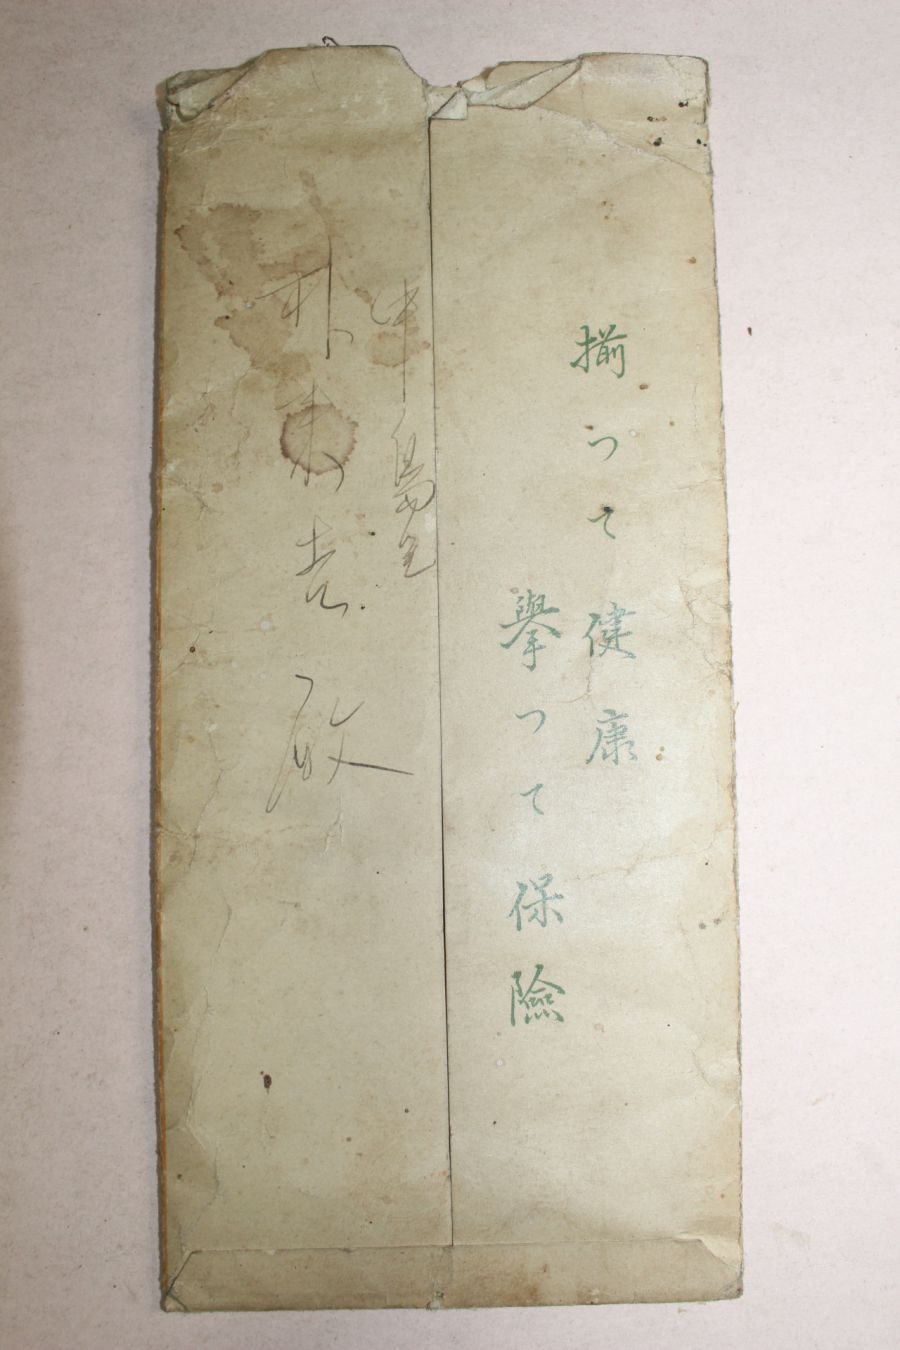 揃つて健康
擧つて保險
中島
朴来吉殿